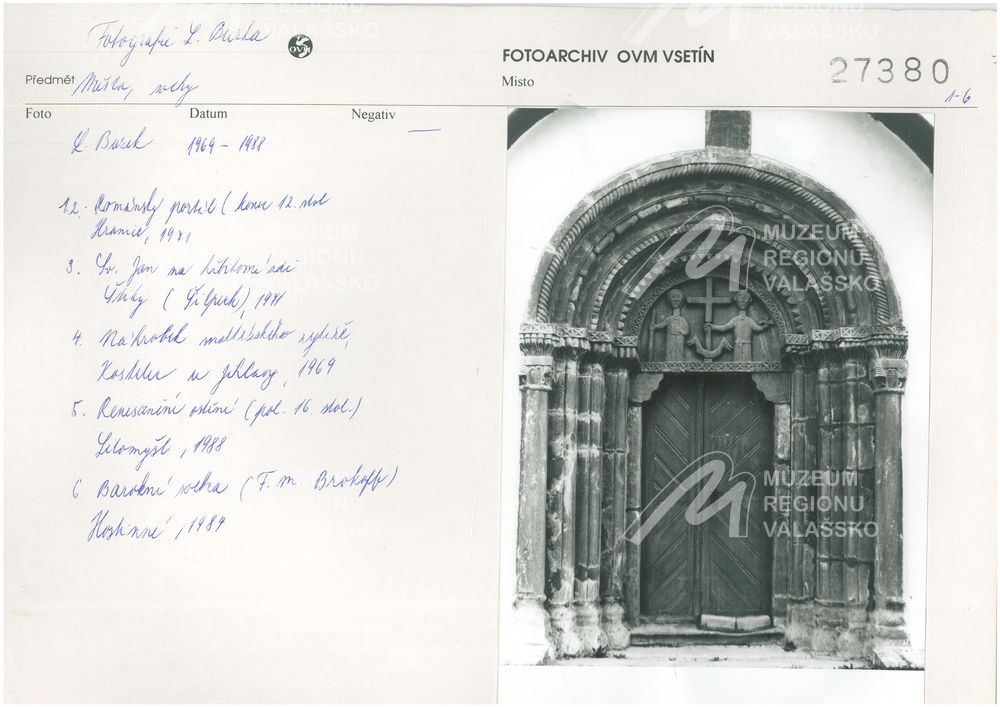 Fotografie L. Burka
OVM
FOTOARCHIV OVM VSETÍN
27380
Předmět Města, sochy
Místo
1-6
Foto Datum Negativ
L. Burek 1969 - 1988 —
1.2.- Románský portál (konec 12. stol
Hranice, 1971
3. Sv. Jan na
Štíty ( ), 1971
4. Náhrobek maltézského rytíře,
Kostelec u Jihlavy, 1969
5. Renesanční ostění (pol. 16. stol.)
Litomyšl, 1988
6. Barokní socha (F. M. Brokoff)
Hostinné, 1984
MUZEUM
REGIONU
VALAŠSKO
MUZEUM
REGIONU
VALAŠSKO